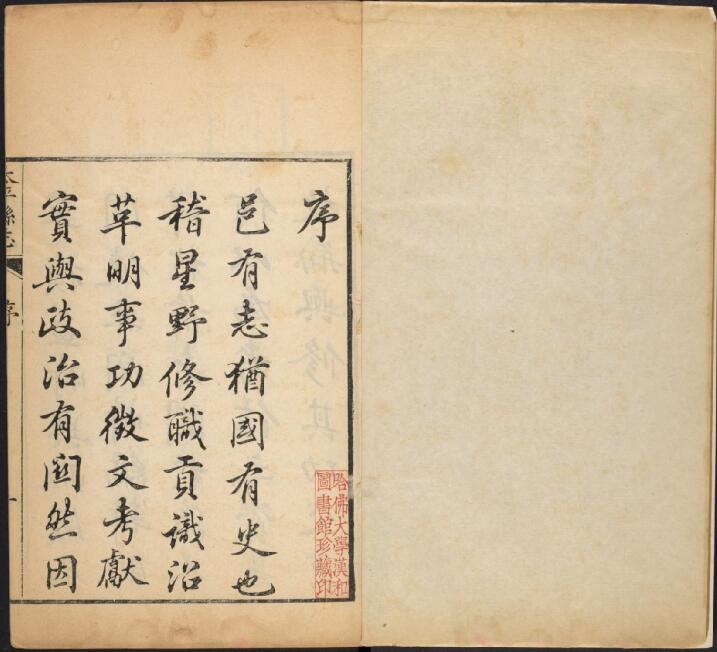 序
邑有志猶國有史也
稽星野修職貢識沿
革明事功徵文考獻
實與政治有關然因
太平縣志
序
一
哈佛大學漢和
圖書館珍藏印